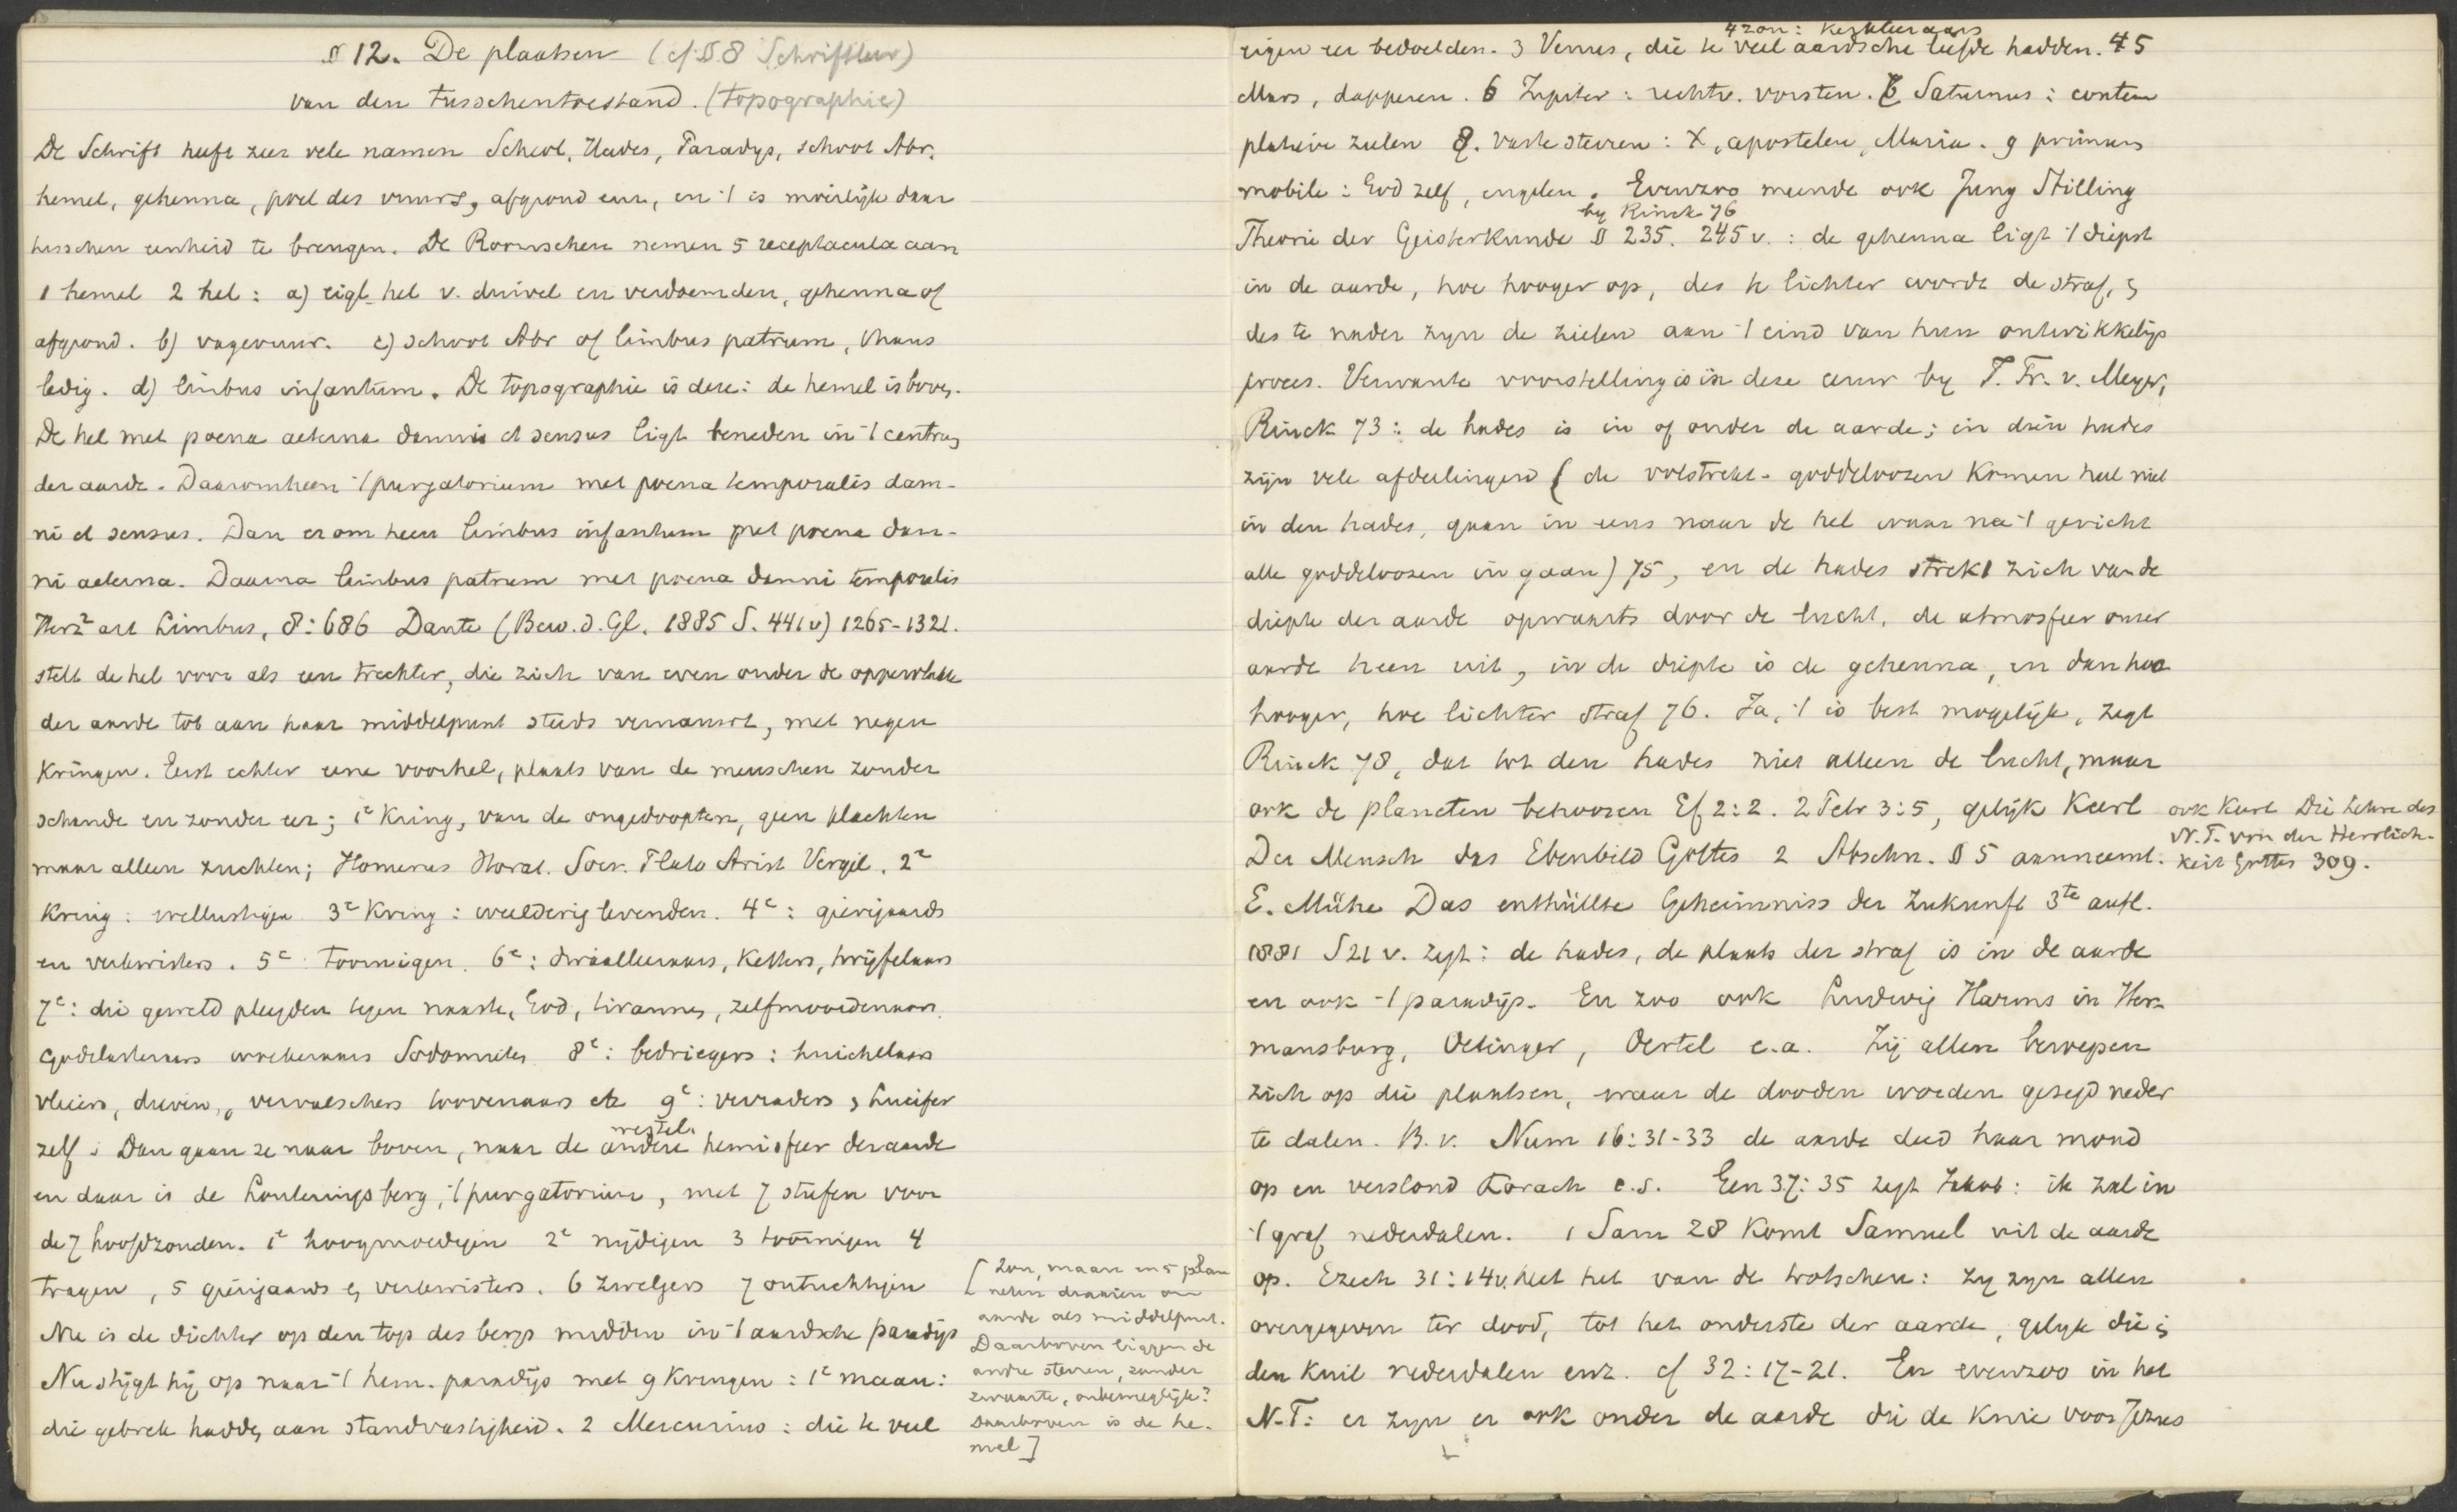 § 12. De plaatsen (cf § 8 Schriftleer)
van den tusschentoestand. (topographie)
De Schrift heeft zeer vele namen Scheol, Hades, Paradys, schoot Abr.
hemel, gehenna, poel des vuurs, afgrond enz, en 't is moeilijk daar
tusschen eenheid te brengen. De Roomschen nemen 5 receptacula aan
1 hemel 2 hel: a) eigl. hel v. duivel en verdoemden, gehenna of
afgrond. b) vagevuur. c) schoot Abr of limbus patrum, thans
ledig. d) limbus infantum. De topographie is deze: de hemel is boven.
De hel met poena aeterna damni et sensus ligt beneden in 't centrum
der aarde. Daaromheen 't purgatorium met poena temporalis dam-
ni et sensus. Dan er om heen limbus infantum met poena dam-
ni aeterna. Daarna limbus patrum met poena damni temporalis
Herz² art Limbus, 8:686 Dante (Bew. d. Gl. 1885 S. 441 v) 1265-1321.
stelt de hel voor als een trechter, die zich van even onder de oppervlakte
der aarde tot aan haar middelpunt steeds vernauwt, met negen
kringen. Eerst echter eene voorhel, plaats van de menschen zonder
schande en zonder eer; 1e Kring, van de ongedoopten, geen klachten
maar alleen zuchten; Homerus Horat. Socr. Plato Arist Vergil. 2e
Kring: wellustigen 3e Kring: weelderig levenden. 4e: gierigaards
en verkwisters. 5e toornigen. 6e: dwaalleeraars, Ketters, twijfelaars
7e: die geweld pleegden tegen naaste, God, tirannen, zelfmoordenaars.
Godslasteraars woekeraars Sodomieten 8e: bedriegers: huichelaars
vleiers, dieven, vervalschers toovenaars etc 9e: verraders, Lucifer
zelf. Dan gaan ze naar boven, naar de andere hemisfeer der aarde
westel.
en daar is de Louteringsberg, 't purgatorium, met 7 stufen voor
de 7 hoofdzonden. 1e hoogmoedigen 2e nijdigen 3 toornigen 4
tragen, 5 gierigaards en verkwisters. 6 zwelgers 7 ontuchtigen
Nu is de dichter op den top des bergs midden in 't aardsche paradijs
Nu stijgt hij op naar 't hem. paradijs met 9 kringen: 1e maan:
die gebrek hadden aan standvastigheid. 2 Mercurius: die te veel
[Zon, maan en 5 plan
neten draaien om
aarde als middelpunt.
Daarboven liggen de
andre sterren, zonder
zwaarte, onbeweeglijk?
Daarboven is de he-
mel]
4 zon: Kerkleeraars
eigen eer bedoelden. 3 Venus, die te veel aardsche liefde hadden. 5
Mars, dapperen. 6 Jupiter: rechtv. vorsten. Saturnus: contem
plative zielen 8. vaste sterren: X, apostelen, Maria. 9 primum
mobile: God zelf, engelen. Evenzoo meende ook Jung Stilling
by Rinck 76
Theorie der Geisterkunde § 235. 245 v.: de gehenna ligt 't diepst
in de aarde, hoe hooger op, des te lichter wordt de straf, en
des te nader zyn de zielen aan 't eind van hun ontwikkelijs
proces. Verwante voorstelling is in deze eeuw by J. Fr. v. Meyer,
Rinck 73: de hades is in of onder de aarde; in dien hades
zijn vele afdeelingen (de volstrekt-goddeloozen komen heel niet
in den hades, gaan in eens naar de hel waar na 't gericht
alle goddeloozen in gaan) 75, en de hades strekt zich van de
diepte der aarde opwaarts door de lucht, de atmosfeer onzer
aarde heen uit, in de diepte is de gehenna, en dan hoe
hooger, hoe lichter straf 76. Ja, 't is best mogelijk, zegt
Rinck 78, dat tot den hades niet alleen de lucht, maar
ook de planeten behooren Ef 2:2. 2 Petr 3:5, gelijk Kurl
Der Mensch das Ebenbild Gottes 2 Abschn. § 5 aanneemt.
ook Kurl Die Lehre des
N.T. von der Herrlich-
keit Gottes 309.
E. Mühe Das enthüllte Geheimniss der Zukunft 3te aufl.
1881 S 21 v. zegt: de hades, de plaats der straf is in de aarde
en ook 't paradijs. En zoo ook Ludwig Harms in Her-
mansburg, Oetinger, Oertel e.a. Zij allen beroepen
zich op die plaatsen, waar de dooden worden gezegd neder
te dalen. B.v. Num 16:31-33 de aarde deed haar mond
op en verslond Korach c.s. Gen 37:35 zegt Jakob: ik zal in
't graf nederdalen. 1 Sam 28 komt Samuel uit de aarde
op. Ezech 31:14v. heet het van de trotschen: zy zyn allen
overgegeven ter dood, tot het onderste der aarde, gelyk die in
den kuil nederdalen enz. cf 32:17-21. En evenzoo in het
N.T: er zyn er ook onder de aarde die de knie voor Jezus